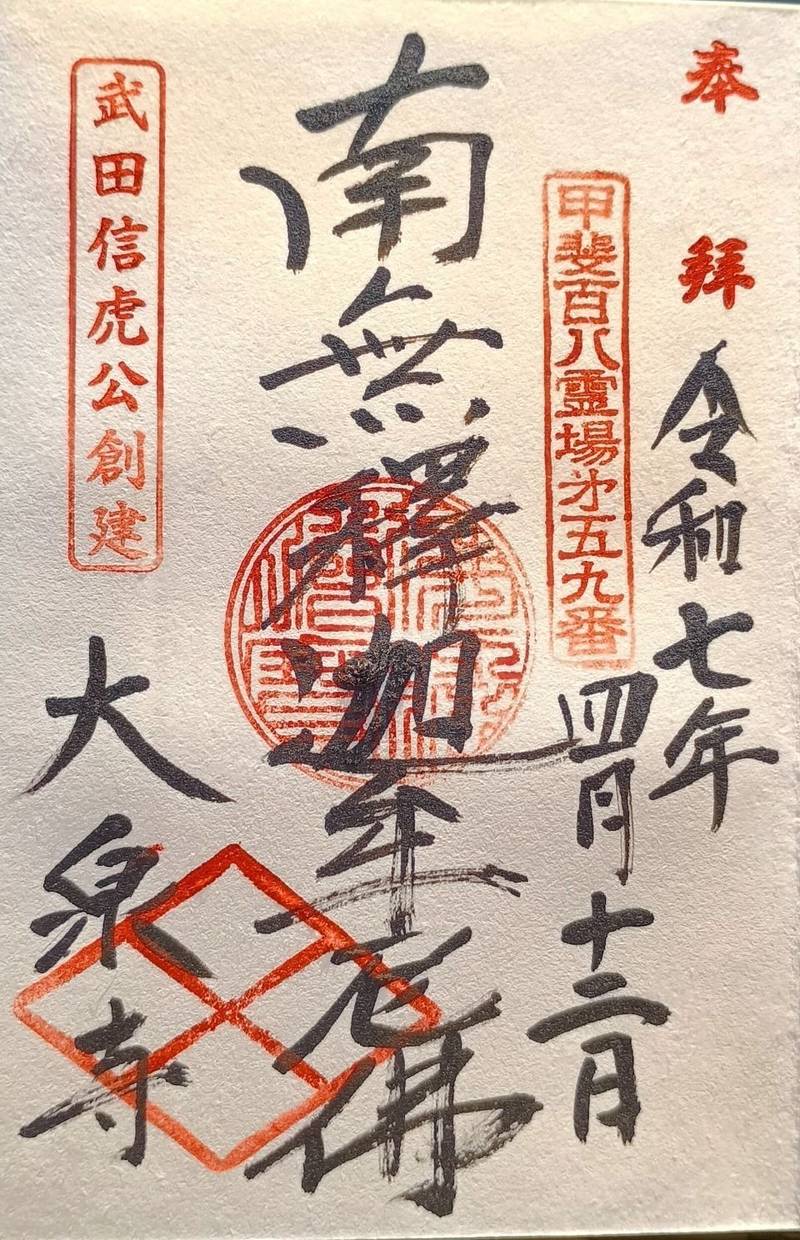 奉拜
令和七年
四月十二日
甲斐百八霊場㐧五九番
南無釋迦牟尼佛
武田信虎公創建
大泉寺